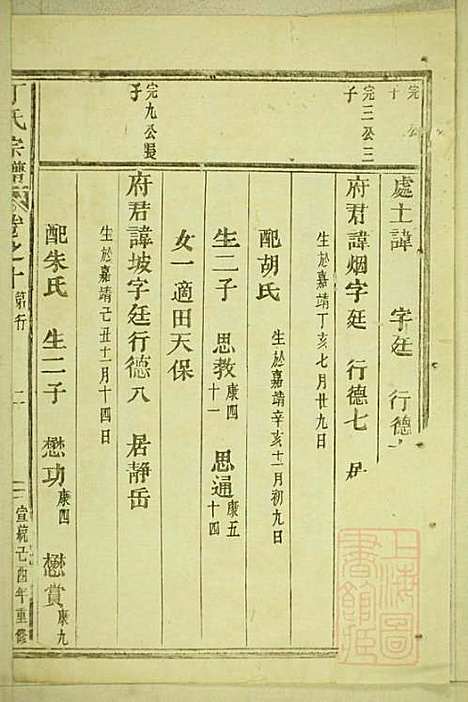 完 公
子
處士諱 字廷 行德
完三公三
子
府君諱烟字廷 行德七 居
生於嘉靖丁亥七月廿九日
配胡氏 生於嘉靖辛亥十一月初九日
生二子 思教 康四十一 思通 康五十四
女一適田天保
完九公長
子
府君諱坡字廷行德八 居靜岳
生於嘉靖己丑十一月十四日
配朱氏 生二子 懋功 康四 懋賞 康九
丁氏宗譜 卷之十 第 行 二 宣統己酉年重修
上海圖書館藏